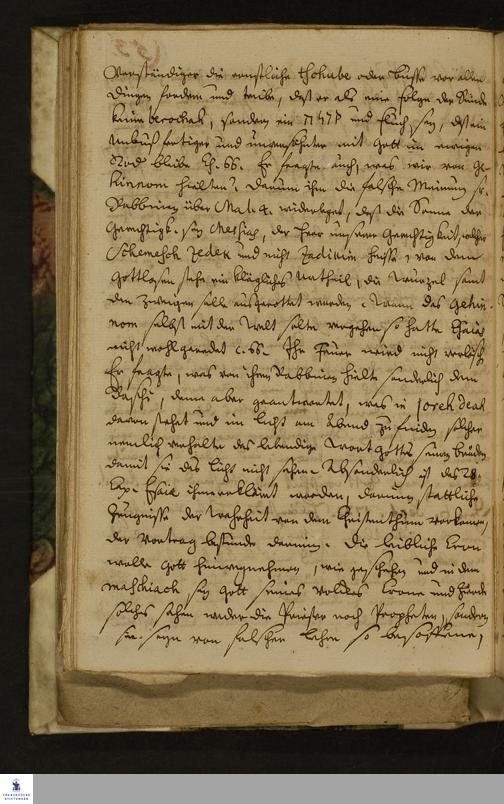 Verständiger die ernstliche thchube oder busse vor allen
Dingen fordern und treibe, daß er als eine Folge der Sünde
keine berachah, sondern ein קללה und Fluch sey, daß ein
unbußfertiger und unversöhnter mit Gott im ewigen
Tod bleibe Es. 66. Er fragte auch, was wir von Ge-
hinnom hielten? Darum ihm die falsche Meinung
Rabbinen über Mal. 4. widerlegt, daß die Sonne der
Gerechtigk. sey Messias, der Herr unsere Gerechtigkeit, welcher
Schemesch zedek und nicht zadikim heisse, von dem
Gottlosen stehe ein klägliches Urtheil, die Wurzel samt
den Zweigen solle ausgerottet werden. Wann das Gehin-
nom selbst mit der Welt solte vergehen, so hätte Esaias
nicht wohl geredet c. 66. Ihr Feuer wird nicht verlösch
Er fragte, was von ihren Rabbinen hielte sonderlich dem
Raschi, dem aber geantwortet, was in Joreh deah
davon stehet und im Licht am Abend zu finden, solcher
nemlich verhelte das lebendige Wort Gottes seinen brüdern
damit sie das Licht nicht sehen. Absonderlich ist das 28.
Cap. Esaiä ihnen erkläret worden, darinnen stattliche
Zeugnisse der Wahrheit von dem Christenthum vorkommen,
der Vortrag bestunde darinn. Die leibliche Cron
wolle Gott hinwegnehmen, wie geschehen und in dem
maschiach sey Gott seines Volckes Crone und Zierde
solches sehen weder die Priester noch Propheten, sondern
sie seyn von falscher Lehre so besoffene,